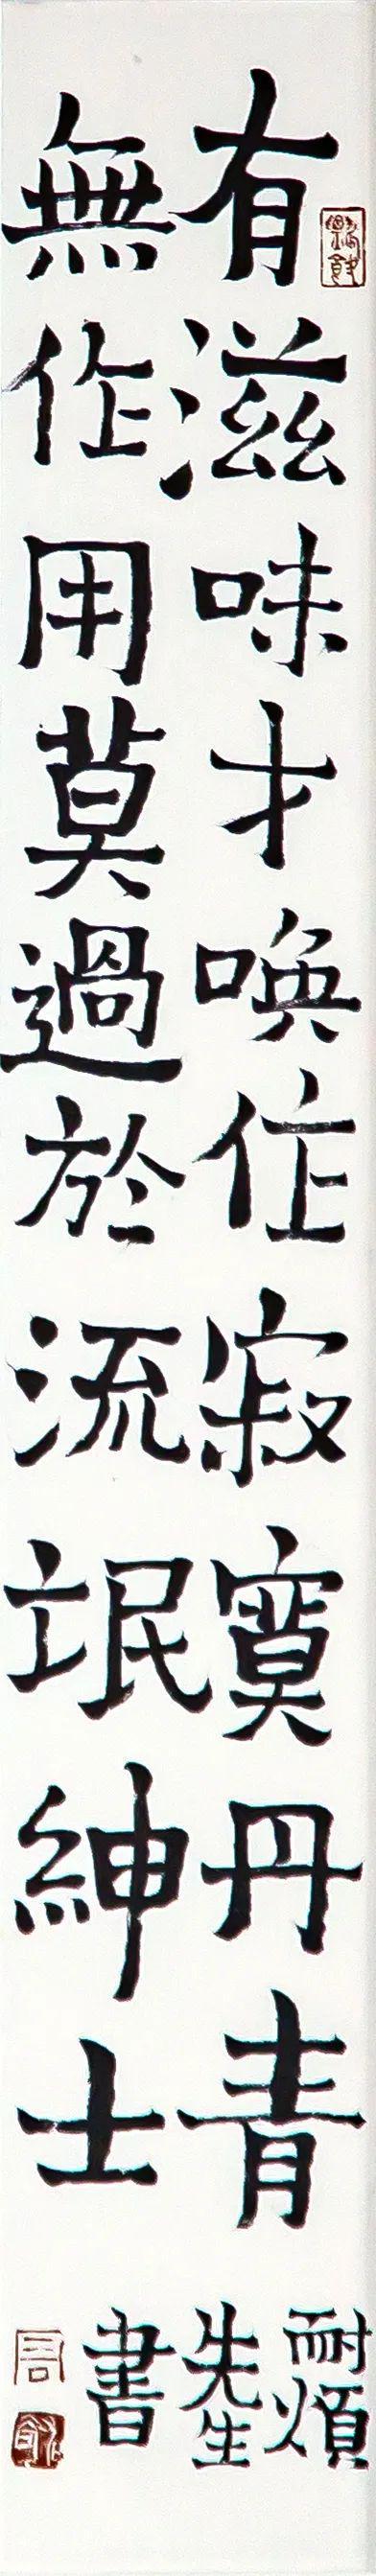 有滋味才喚作寂寞丹青
無作用莫過於流氓紳士
耐煩
先生
書